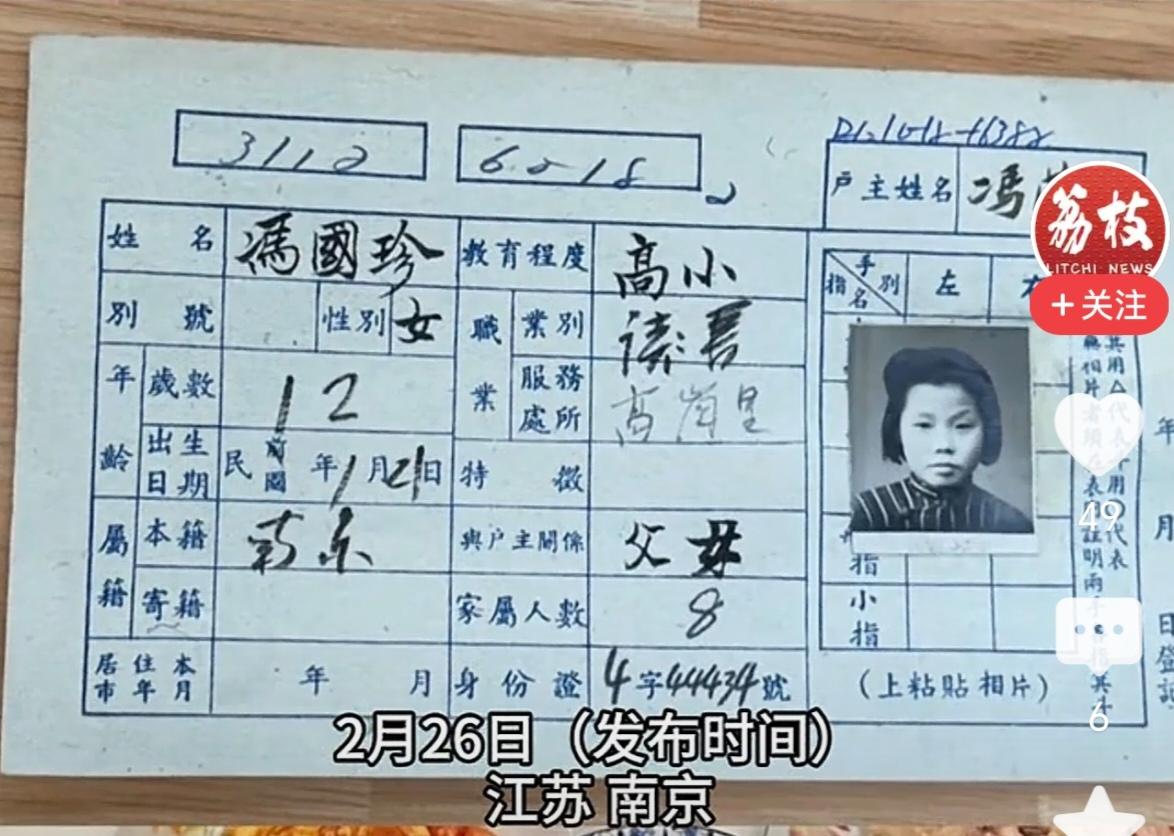 3112
6-2-18
户主姓名 馮
姓名 馮國珍 教育程度 高小
別號 性別 女 職業 業別 读書
年齡 歲數 12 服務處所 高崗里
出生日期 民前國 年1月21日 特徵
屬籍 本籍 南京 與户主關係 父母
寄籍 家屬人數 8
居住本市年月 年 月 身份證 4字44434號
手別 指名 左
指
小指
(上粘貼相片)
年
月
日登記
荔枝
LITCHI NEWS
+关注
49
6
2月26日（发布时间）
江苏 南京